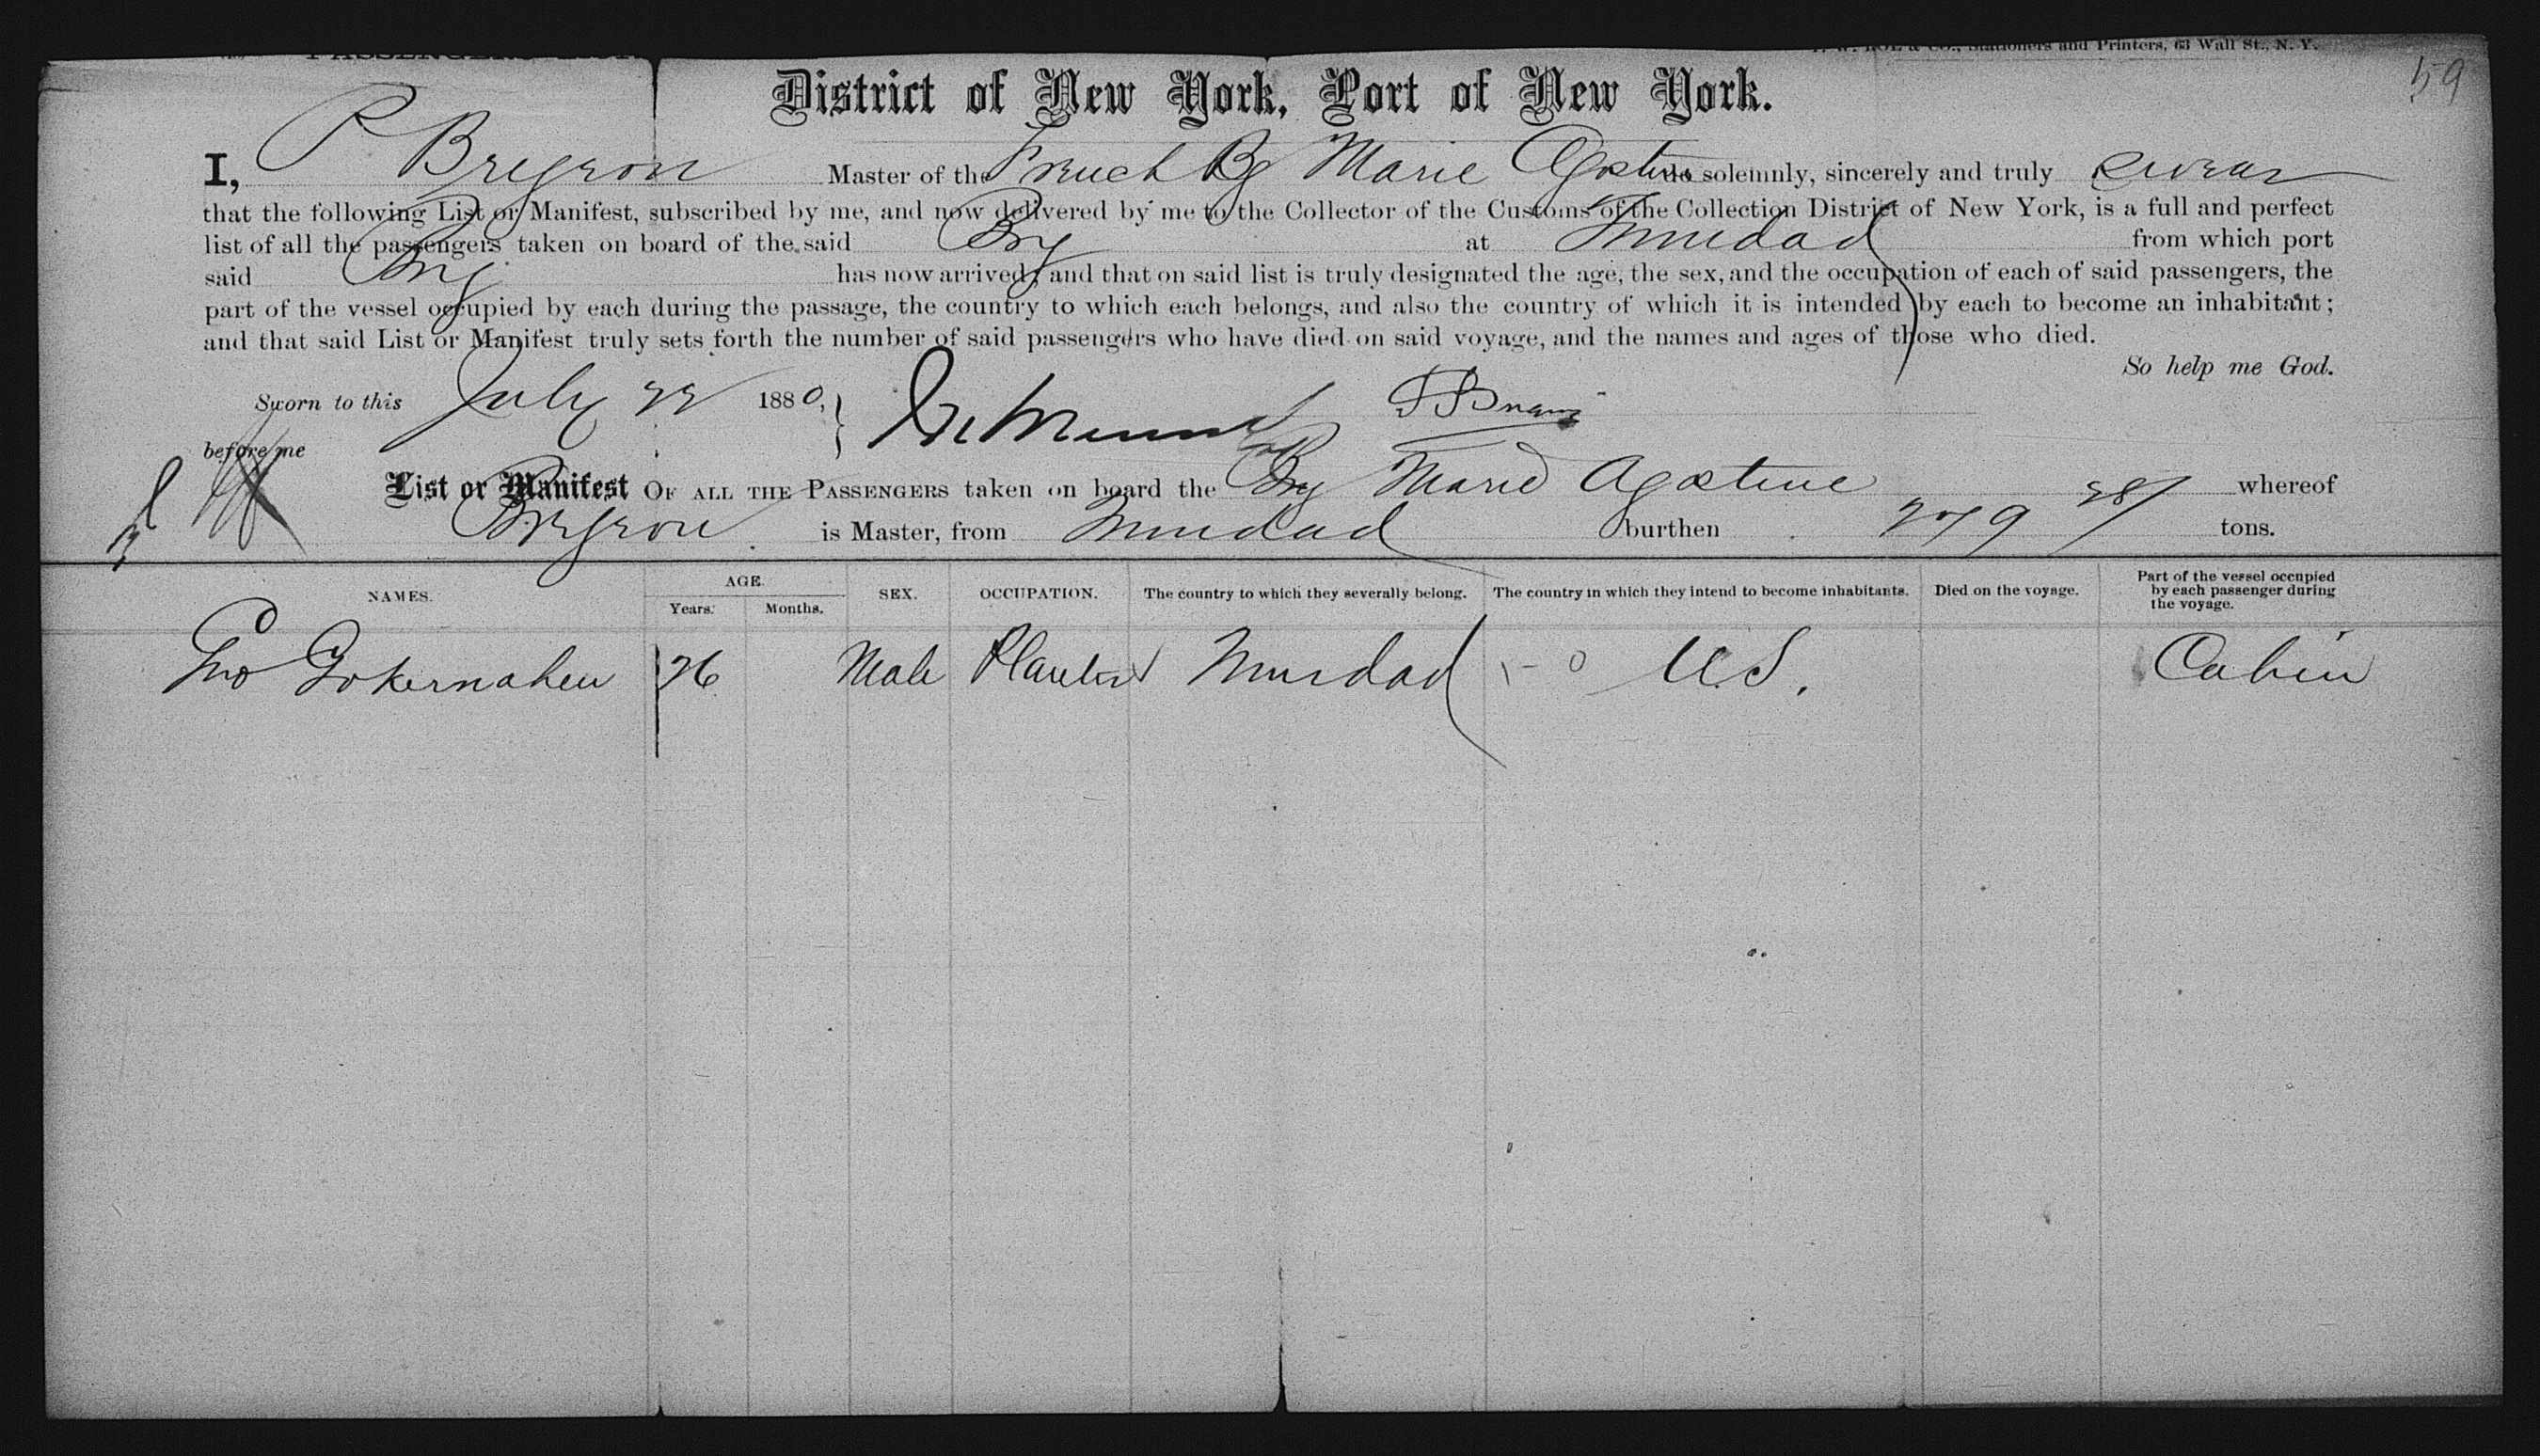 PASSENGERS LIST.
& CO., Stationers and Printers, 63 Wall St., N. Y.
59
District of New York, Port of New York.
I, P Bregeon Master of the French Bg Marie Agstine do solemnly, sincerely and truly swear
that the following List or Manifest, subscribed by me, and now delivered by me to the Collector of the Customs of the Collection District of New York, is a full and perfect
list of all the passengers taken on board of the said Brg at Trinidad from which port
said Brg has now arrived, and that on said list is truly designated the age, the sex, and the occupation of each of said passengers, the
part of the vessel occupied by each during the passage, the country to which each belongs, and also the country of which it is intended by each to become an inhabitant;
and that said List or Manifest truly sets forth the number of said passengers who have died on said voyage, and the names and ages of those who died.
So help me God.
Sworn to this July 22 1880,
before me
List or Manifest OF ALL THE PASSENGERS taken on board the Brg Marie Agstine whereof
Bregeon is Master, from Trinidad burthen 279 28/ tons.
NAMES. AGE. Years. Months. SEX. OCCUPATION. The country to which they severally belong. The country in which they intend to become inhabitants. Died on the voyage. Part of the vessel occupied by each passenger during the voyage.
Geo 26 Male Planter Trinidad U.S. Cabin